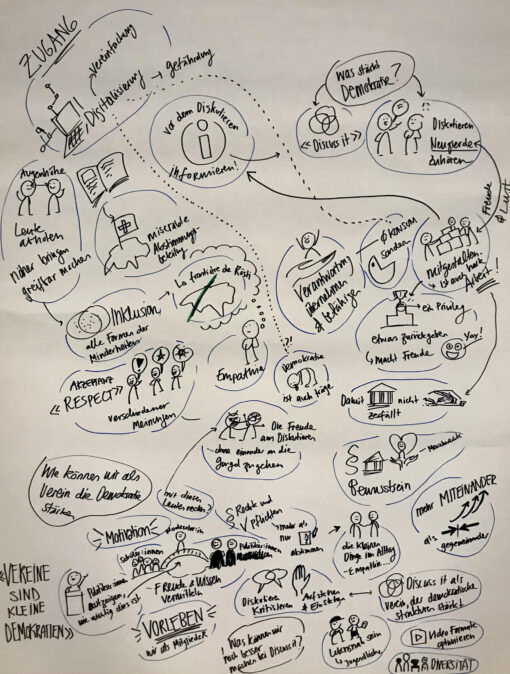 ZUGANG
Vereinfachung
Digitalisierung
gefährdung
Was stärkt
Demokratie?
«Discuss it»
Diskutieren
Neugierde
zuhören
vor dem Diskutieren
informieren!
Augenhöhe
Leute
abholen
näher bringen
greifbar machen
miserable
Abstimmungs
beteilig
Freude
Lust
Verantwortung
übernehmen
Ø KONSUM
sondern
mitgestalten
ist auch harte
Arbeit!
La frontière de Rösti
Inklusion
alle Formen der
Minderheiten
ein Privileg
etwas zurückgeben
macht Freude
Yay!
Empathie
?!
Demokratie
ist auch träge
AKZEPTANZ
«RESPECT»
verschiedener
Meinungen
Damit nicht
zerfällt
Die Freude
am Diskutieren
ohne einander an die
Gurgel zu gehen
§
Bewusstsein
Wie können wir als
Verein die Demokratie
stärken
mit diesen
Leuten reden?
mehr MITEINANDER
als
gegeneinander
Rechte und
Pflichten
Motivation
Moderator:in
Schüler:innen
Politiker:innen
mehr als
nur
abstimmen
die kleinen
Dinge im Alltag
Empathie...
«VEREINE
SIND
KLEINE
DEMOKRATIEN»
Freude & Wissen
vermitteln
wie wichtig dies ist
VORLEBEN
wir als Mitglieder
Diskutieren
Kritisieren
Aufstehen
& Einstehen
Discuss it als
Verein, der demokratische
strukturen stärkt
Was können wir
noch besser
machen bei Discuss it?
Lebensnah sein
Jugendliche
Video Formate
optimieren
DIVERSITÄT